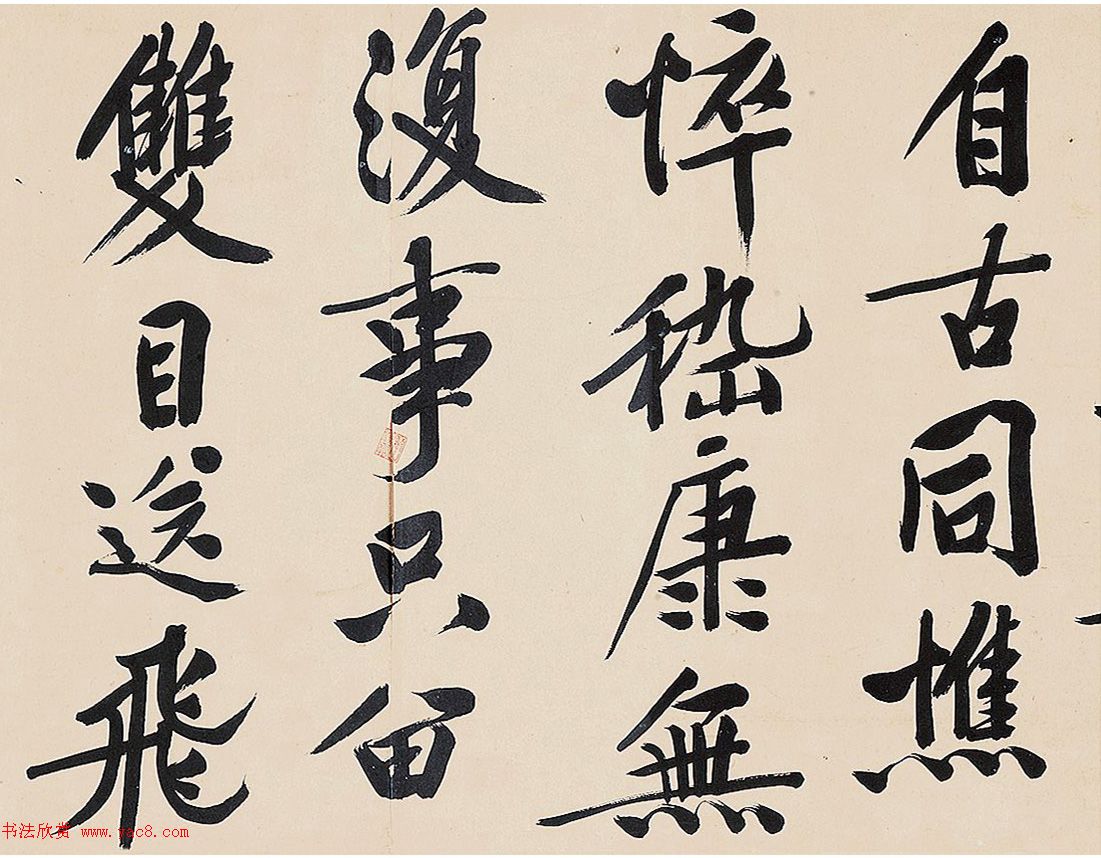 自古同憔
悴嵇康無
復事只留
雙目送飛
书法欣赏 www.yac8.com